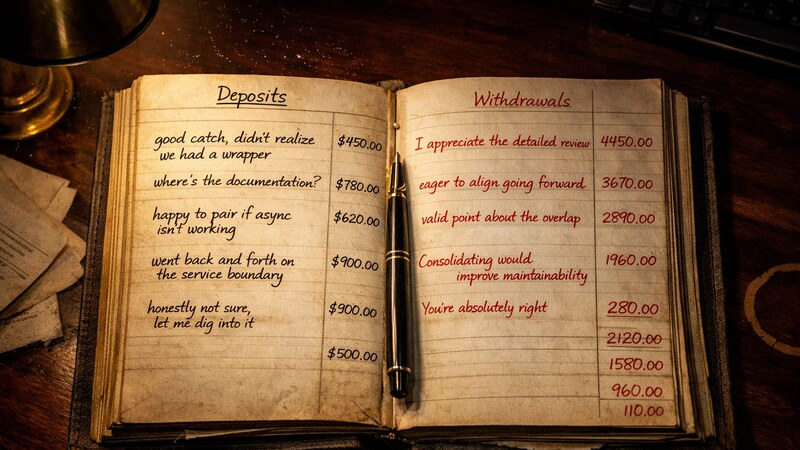 Deposits
good catch, didn't realize $450.00
we had a wrapper
where's the documentation? $780.00
happy to pair if async $620.00
isn't working
went back and forth on $900.00
the service boundary
honestly not sure, $900.00
let me dig into it
$500.00
Withdrawals
I appreciate the detailed review 4450.00
eager to align going forward 3670.00
valid point about the overlap 2890.00
Consolidating would 1960.00
improve maintainability
You're absolutely right 280.00
2120.00
1580.00
960.00
110.00